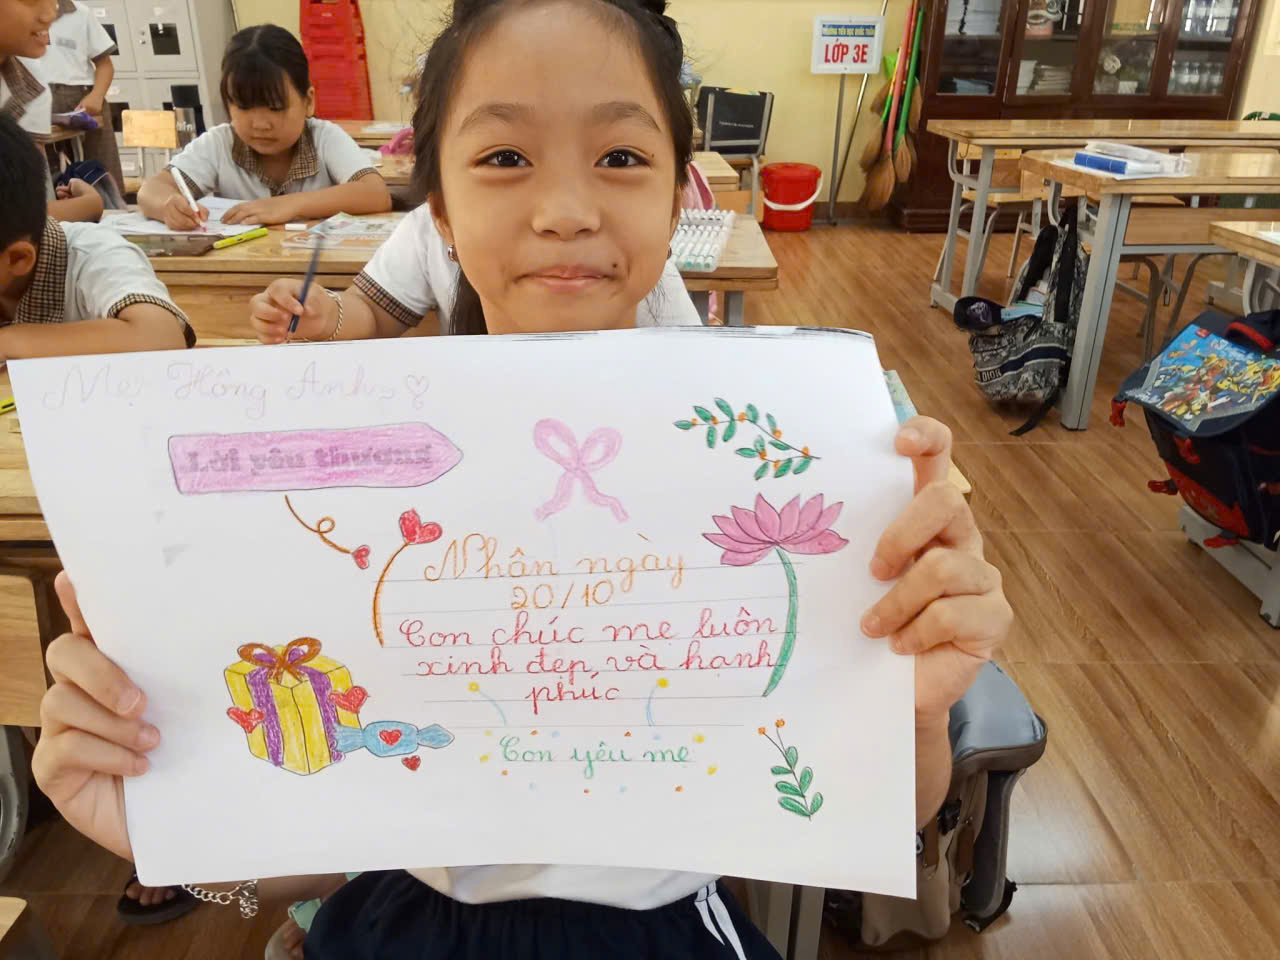 TRƯỜNG TIỂU HỌC QUỐC TUẤN
LỚP 3E
Mẹ Hồng Anh
Lời yêu thương
Nhân ngày
20/10
Con chúc mẹ luôn
xinh đẹp và hạnh
phúc
Con yêu mẹ
DIOR